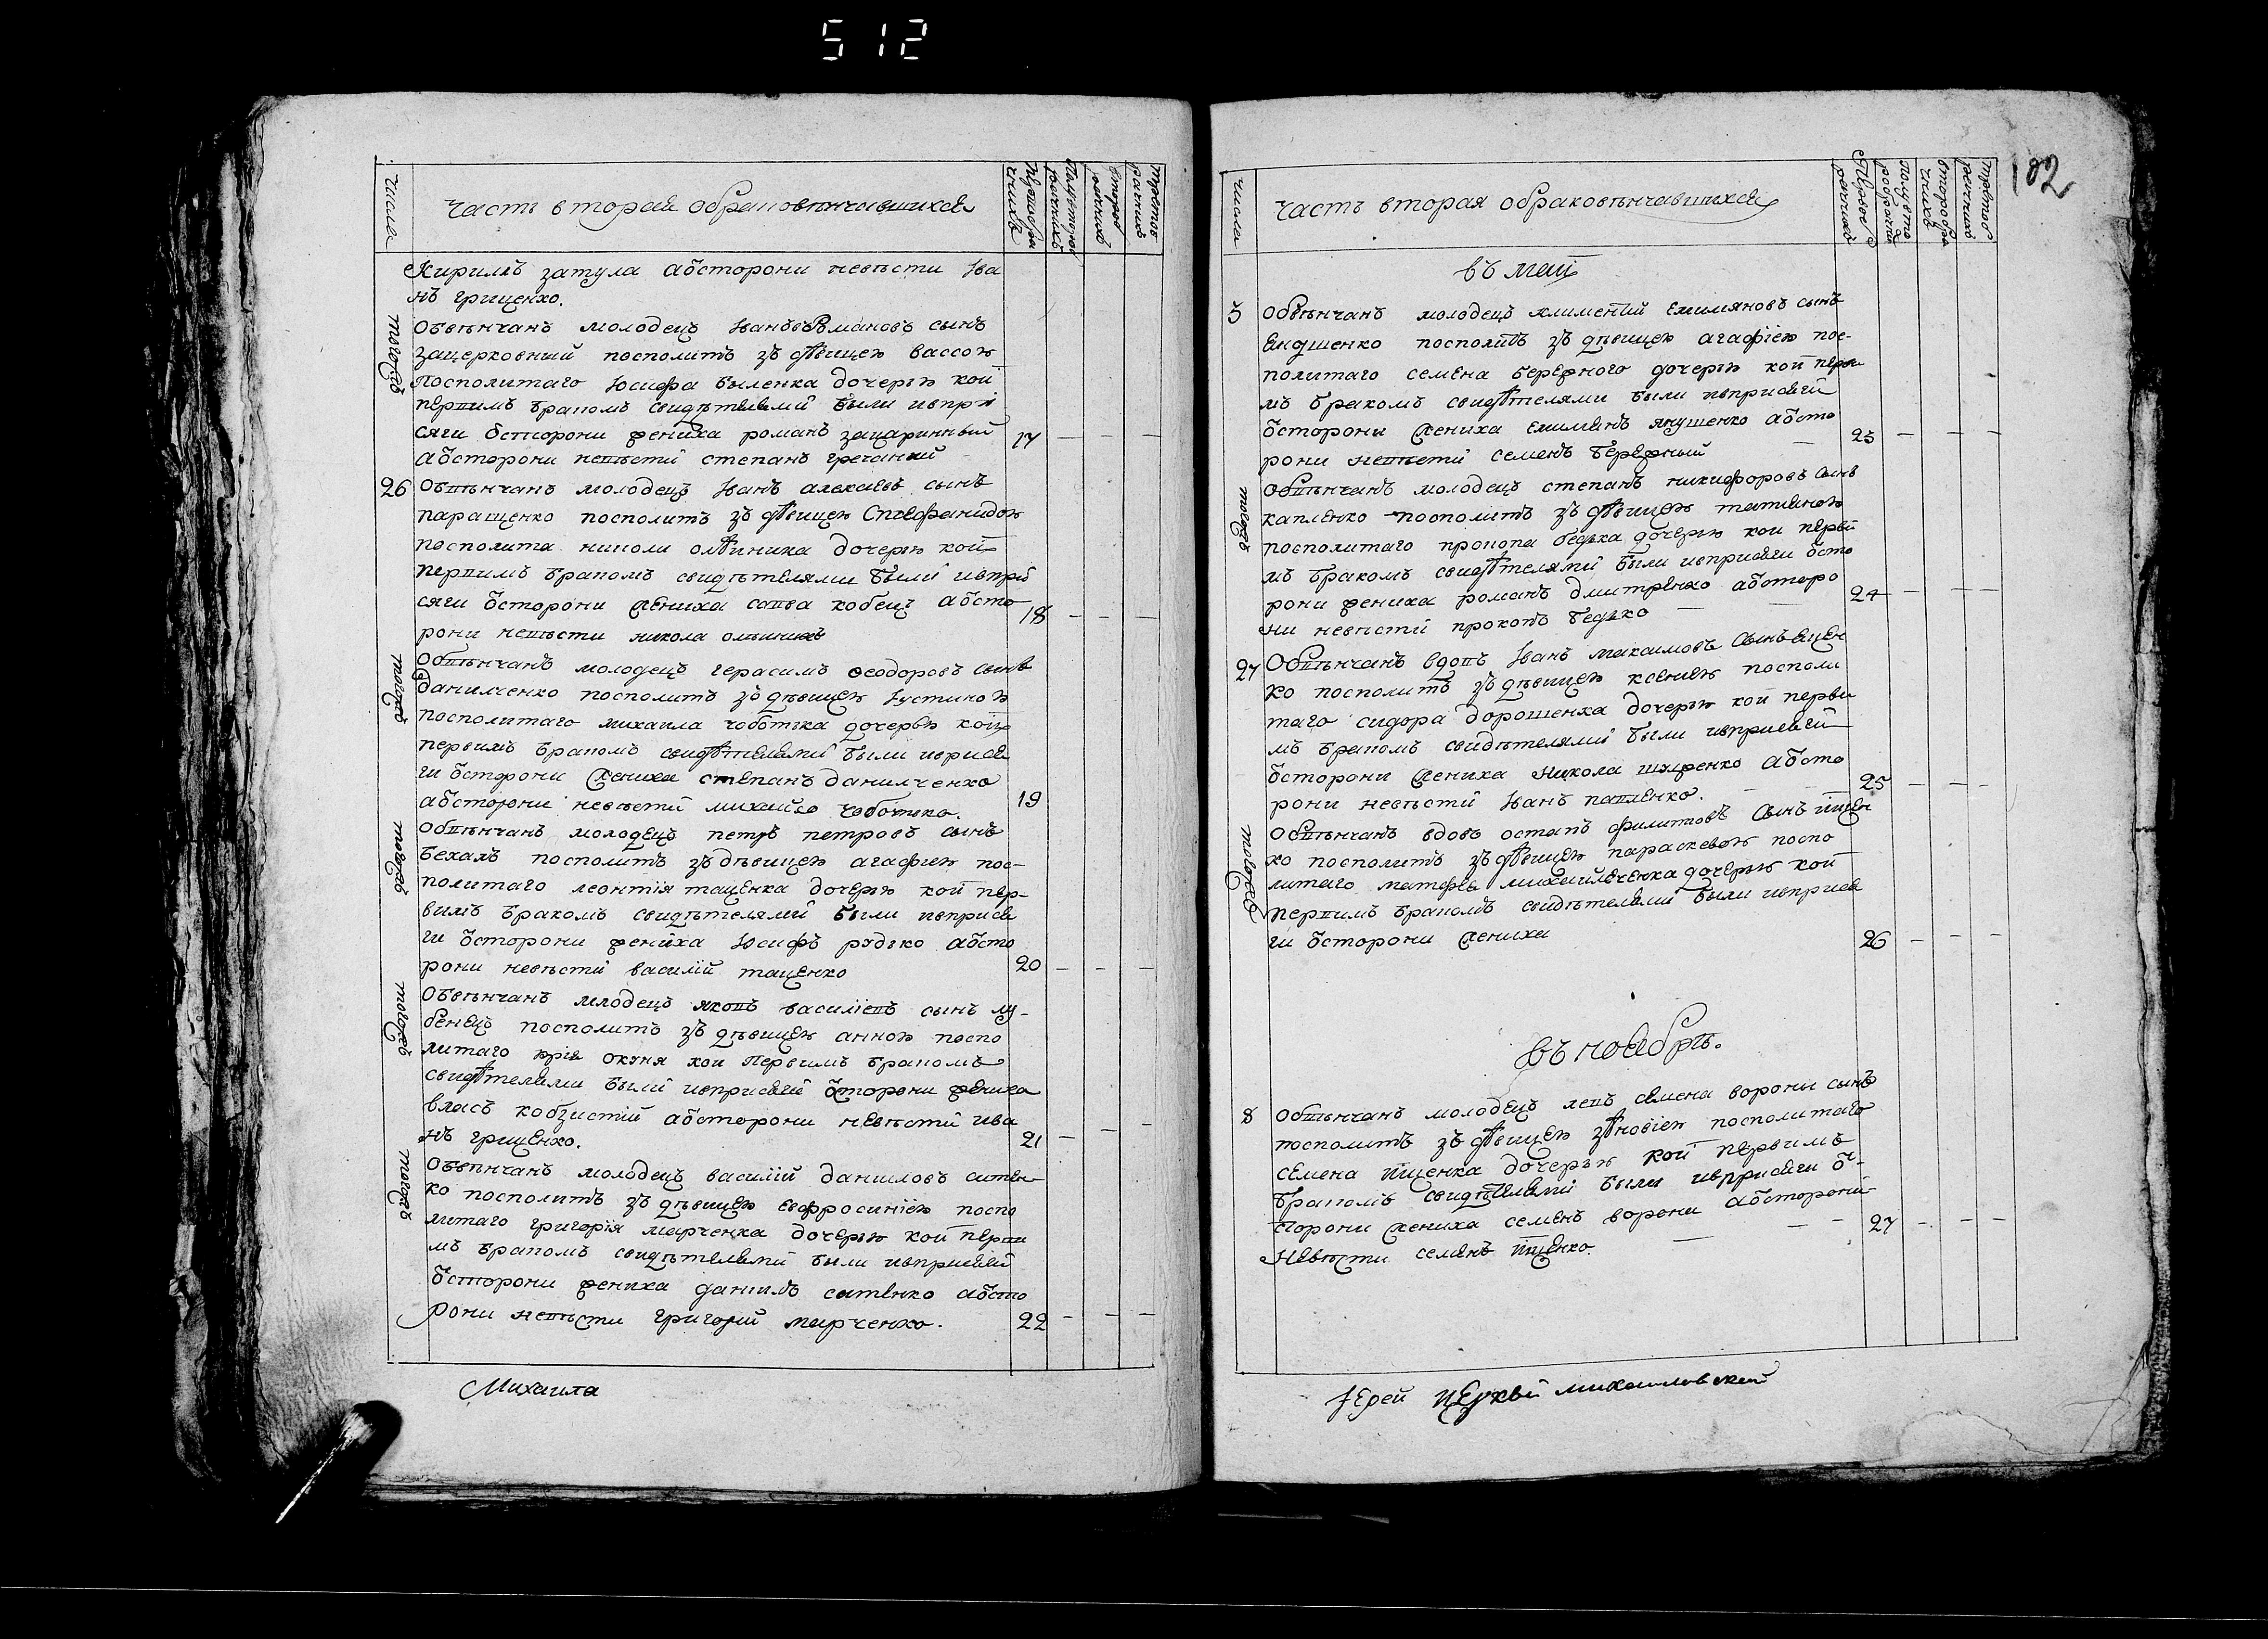 512
числа
часть вторая обраковѣнчавшихся
Кирилъ затула аѿсторони невѣсти Іва
нъ гриценко.
тогожъ
Обвѣнчанъ молодецъ Іванъ Романовъ сынъ
зацерковный посполитъ зъ дѣвицею вассою
посполитаго Іосифа быленка дочерью кои
первимъ бракомъ свидѣтелями были ивпри
сяги ѿсторони жениха романъ зацаринный
17
аѿсторони невѣсти степанъ гречаний
26
Обвѣнчанъ молодецъ Іванъ алексѣевъ сынъ
паращенко посполитъ зъ дѣвицею Степфанидою
посполита николи олѣиника дочерью кои
первимъ бракомъ свидѣтелями были ивпри
сяги ѿсторони жениха савва кобецъ аѿсто
18
рони невѣсти никола олѣиникъ
тогожъ
Обвѣнчанъ молодецъ герасимъ Феодоровъ сынъ
данилченко посполитъ зъ дѣвицею Іустиною
посполитаго михаила чоботка дочерью кои
первимъ бракомъ свидѣтелями были иприся
ги ѿсторони жениха степанъ данилченко
аѿсторони невѣсти михайло чоботко.
19
тогожъ
обвѣнчанъ молодецъ петръ петровъ сынъ
бехалъ посполитъ зъ дѣвицею агафиею пос-
политаго леонтія таценка дочерью кои пер-
вимъ бракомъ свидѣтелями были ивприся
ги ѿсторони жениха Іосифъ рудько аѿсто
рони невѣсти василій таценко
20
тогожъ
Обвѣнчанъ млодецъ яковъ василіевъ сынъ лу-
бенецъ посполитъ зъ дѣвицею анною поспо
литаго юрія окуня кои первимъ бракомъ
свидѣтелями были ивприсяги ѿсторони жениха
власъ кобзистій аѿсторони невѣсти ива
нъ гриценко.
21
тогожъ
Обвѣнчанъ молодецъ василій даниловъ ситен-
ко посполитъ зъ дѣвицею евфросиніею поспо
литаго григорія марченка дочерью кои перви
мъ бракомъ свидѣтелями были ивприсяги
ѿсторони жениха данилъ ситенко аѿсто
рони невѣсти григорий марченко.
22
Михаила
102
числа
часть вторая обраковѣнчавшихся
въ маи
5
обвѣнчанъ молодецъ климентий емиляновъ сынъ
Янушенко посполитъ зъ дѣвицею агафіею пос-
политаго семена бережного дочерью кои перви
мъ бракомъ свидѣтелями были ивприсяги
ѿсторони жениха емилянъ янушенко аѿсто
23
рони невѣсти семенъ бережный
тогожъ
обвѣнчанъ молодецъ степанъ никифоровъ сынъ
капленко посполитъ зъ дѣвицею татияною
посполитаго прокопа бедька дочерью кои перви
мъ бракомъ свидѣтелями были ивприсяги ѿсто
рони жениха романъ дмитренко аѿсторо
24
ни невѣсти прокопъ бедько
27
Обвѣнчанъ вдовъ Іванъ максимовъ сынъ ецен
ко посполитъ зъ дѣвицею ксениею посполи
таго сидора дорошенка дочерью кои перви
мъ бракомъ свидѣтелями были ивприсяги
ѿсторони жениха никола шифренко аѿсто
25
рони невѣсти Іванъ павленко.
тогожъ
Обвѣнчанъ вдовъ остапъ филиповъ сынъ ищен
ко посполитъ зъ дѣвицею параскевою поспо
литаго матфея михаилѣченка дочерью кои
первимъ бракомъ свидѣтелями были ивприся
ги ѿсторони жениха
26
въ ноябрѣ.
8
обвѣнчанъ молодецъ левъ семена вороны сынъ
посполитъ зъ дѣвицею зѣновіею посполитаго
семена ищенка дочерью кои первимъ
бракомъ свидѣтелями были ивприсяги ѿ-
сторони жениха семенъ ворона аѿсторони
27
невѣсти семенъ ищенко.
Іерей церкви михаиловской